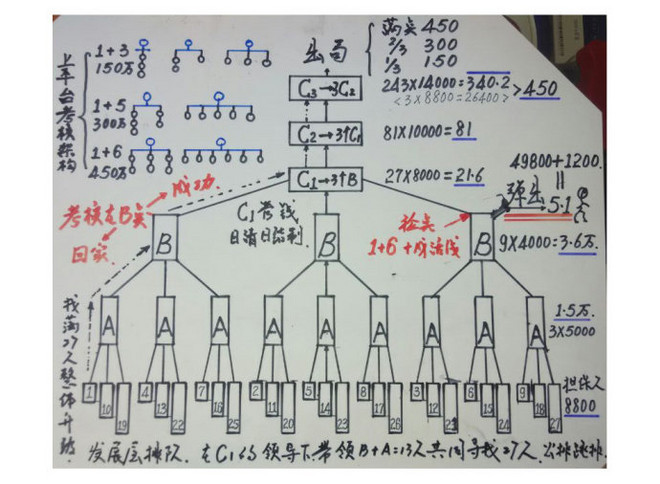 上平台考核架构
1+3
150万
1+5
300万
1+6
450万
出局
满点 450
2/3 300
1/3 150
C3→3C2
243×14000=340.2
>450
<3×8800=26400>
C2→3个C1
81×10000=81
C1→3个B
27×8000=21.6
49800+1200.
=
弹出5.1
成功.
考核走B点
回家.
C1考钱
日清日结制
捡点
1+6+成活线
B
B
B
9×4000=3.6万.
A
A
A
A
A
A
A
A
A
1.5万.
3×5000
找满27人整体升级.
1
10
19
4
13
22
7
16
25
2
11
20
5
14
23
8
17
26
3
12
21
6
15
24
9
18
27
担保人
8800
发展层排队. 在C1的领导下.带领B+A=13人共同寻找27人.公排跳排.